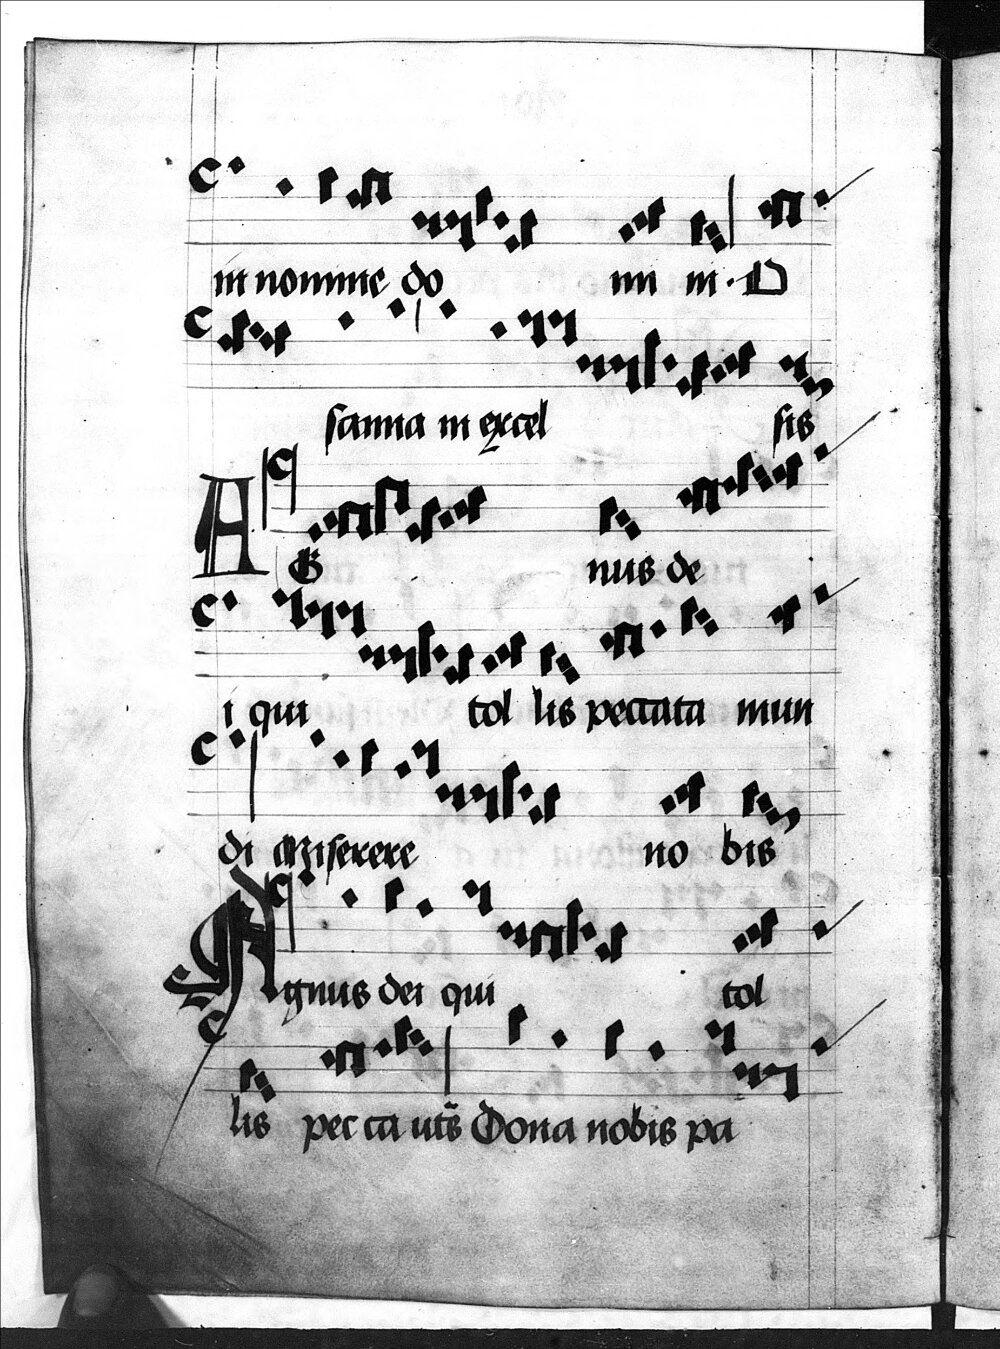 in nomine do ni ni · O
sanna in excel sis
A G nus de
i qui tol lis peccata mun
di Miserere no bis
Agnus dei qui tol
lis pec ca ut s̄ Dona nobis pa